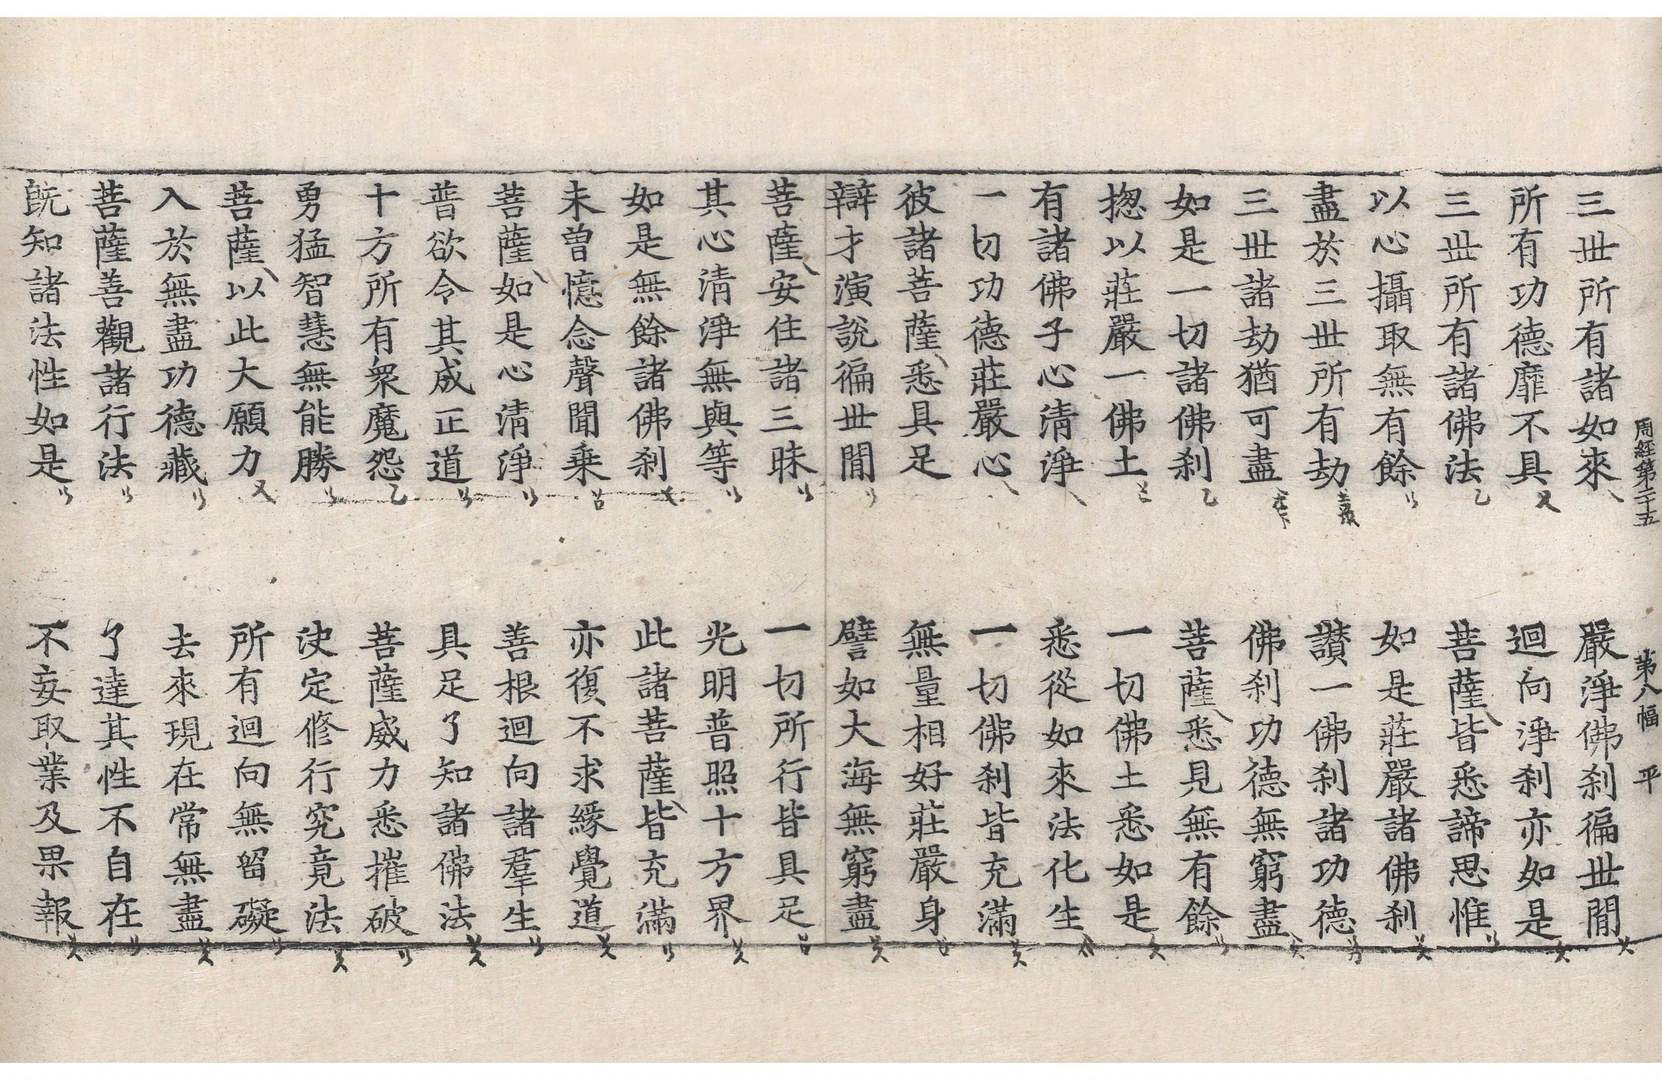 周經第二十五 第八幅 平
三世所有諸如來 嚴淨佛刹徧世閒
所有功德靡不具 迴向淨刹亦如是
三世所有諸佛法 菩薩皆悉諦思惟
以心攝取無有餘 如是莊嚴諸佛刹
盡於三世所有劫 讃一佛刹諸功德
三世諸劫猶可盡 佛刹功德無窮盡
如是一切諸佛刹 菩薩悉見無有餘
揔以莊嚴一佛土 一切佛土悉如是
有諸佛子心清淨 悉從如來法化生
一切功德莊嚴心 一切佛刹皆充滿
彼諸菩薩悉具足 無量相好莊嚴身
辯才演說徧世閒 譬如大海無窮盡
菩薩安住諸三昧 一切所行皆具足
其心清淨無與等 光明普照十方界
如是無餘諸佛刹 此諸菩薩皆充滿
未曾憶念聲聞乗 亦復不求緣覺道
菩薩如是心清淨 善根迴向諸羣生
普欲令其成正道 具足了知諸佛法
十方所有衆魔怨 菩薩威力悉摧破
勇猛智慧無能勝 决定修行究竟法
菩薩以此大願力 所有迴向無留礙
入於無盡功德藏 去來現在常無盡
菩薩善觀諸行法 了達其性不自在
旣知諸法性如是 不妄取業及果報